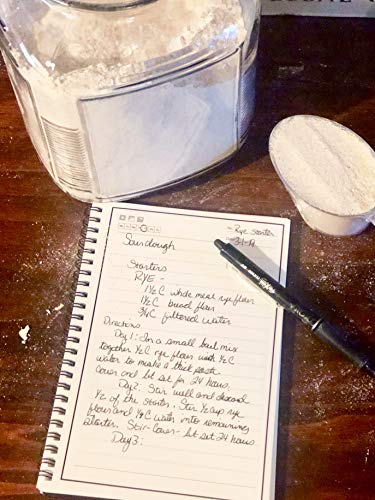 - Rye starter
3-1-19
Sourdough
Starters
RYE -
1½ C whole meal rye flour
1½ C bread flour
¾ C filtered water
Directions
Day 1: In a small bwl mix
together ½ C rye flour with ½ C
water to make a thick paste
Cover and let set for 24 hours.
Day 2: Stir well and discard
½ of the starter. Stir ½ cup rye
flour and ¼ C water into remaining
starter. Stir-Cover- let set 24 hours
Day 3: